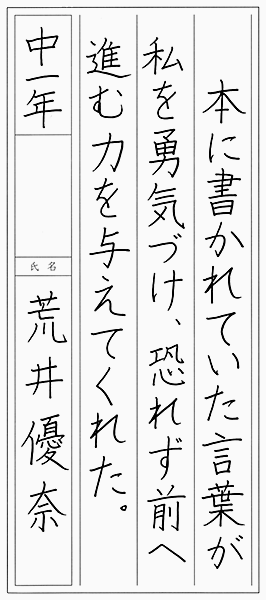 本に書かれていた言葉が
私を勇気づけ、恐れず前へ
進む力を与えてくれた。
中一年
氏名
荒井優奈